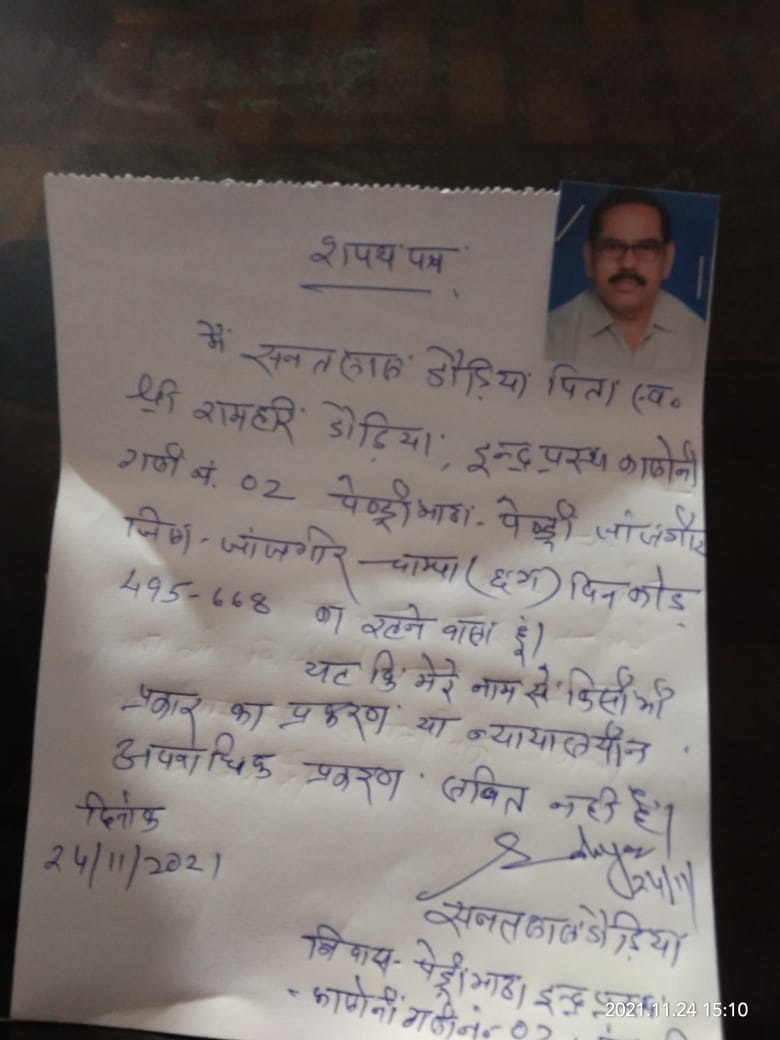 शपथ पत्र
मैं सनतलाल डौड़िया पिता स्व.
श्री रामहरि डौड़िया, इन्द्रप्रस्थ कालोनी
गली नं. 02 पेण्ड्रीभाठा - पेण्ड्री जांजगीर
जिला - जांजगीर - चाम्पा (छग) पिन कोड
495-668 का रहने वाला हूं।
यह कि मेरे नाम से किसी भी
प्रकार का प्रकरण या न्यायालयीन
अपराधिक प्रकरण लंबित नहीं है।
दिनांक
24/11/2021
24/11
सनतलाल डौड़िया
निवास - पेण्ड्रीभाठा इन्द्रप्रस्थ
- कालोनी गली नं. - 02
2021.11.24 15:10